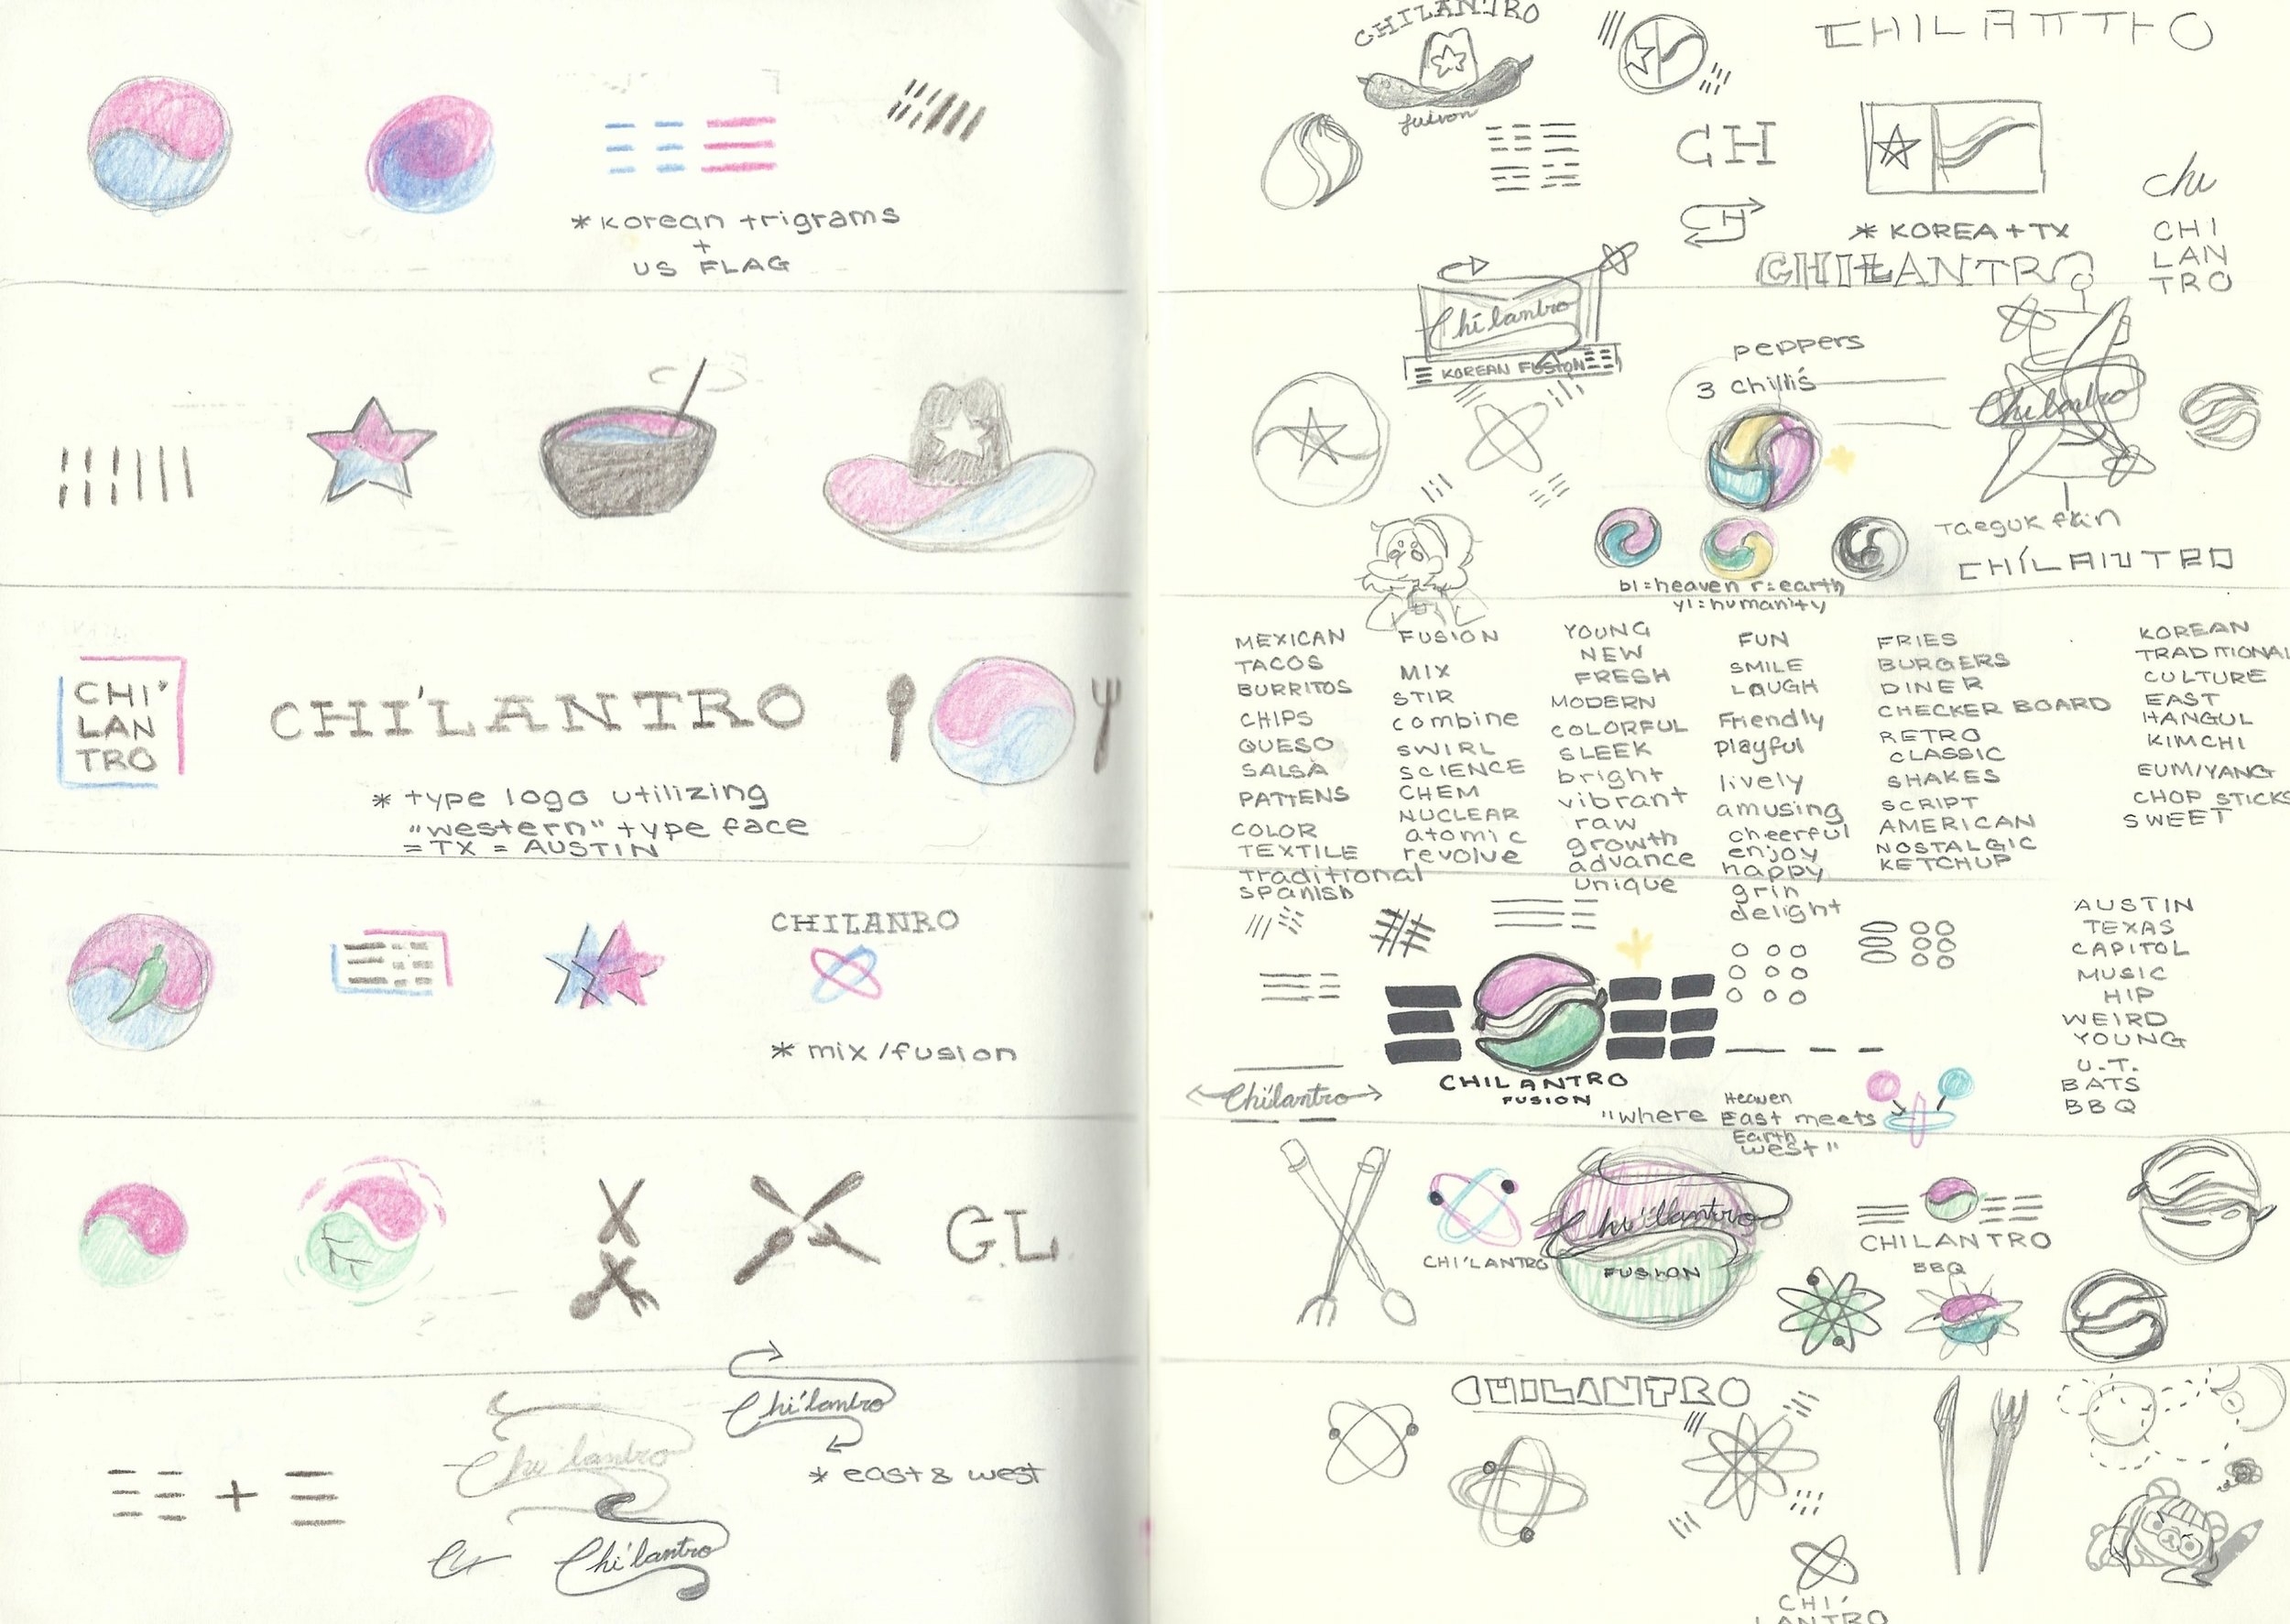 * Korean trigrams
+
US FLAG
CHI'
LAN
TRO
CHI'LANTRO
* type logo utilizing
"western" type face
= TX = AUSTIN
CHILANRO
* mix / fusion
G.L
Chi'lantro
* east & west
Chi'lantro
Chi'lantro
CHILANTRO
fusion
CHILANTRO
CH
CH
* KOREA + TX
CHILANTRO
chi
CHI
LAN
TRO
Chilantro
KOREAN FUSION
peppers
3 chillis
Chilantro
Taeguk fan
CHÍLANTRO
bl=heaven r=earth
yl=humanity
MEXICAN
TACOS
BURRITOS
CHIPS
QUESO
SALSA
PATTENS
COLOR
TEXTILE
traditional
spanish
FUSION
MIX
STIR
combine
SWIRL
SCIENCE
CHEM
NUCLEAR
atomic
revolve
YOUNG
NEW
FRESH
MODERN
COLORFUL
SLEEK
bright
vibrant
raw
growth
advance
unique
FUN
SMILE
LAUGH
Friendly
playful
lively
amusing
cheerful
enjoy
happy
grin
delight
FRIES
BURGERS
DINER
CHECKER BOARD
RETRO
CLASSIC
SHAKES
SCRIPT
AMERICAN
NOSTALGIC
KETCHUP
KOREAN
TRADITIONAL
CULTURE
EAST
HANGUL
KIMCHI
EUM/YANG
CHOP STICKS
SWEET
AUSTIN
TEXAS
CAPITOL
MUSIC
HIP
WEIRD
YOUNG
U.T.
BATS
BBQ
CHILANTRO
FUSION
Chi'lantro
Heaven
"where East meets
Earth
west"
CHI'LANTRO
Chi'lantro
FUSION
CHILANTRO
BBQ
CHILANTRO
CHI'
LANTRO